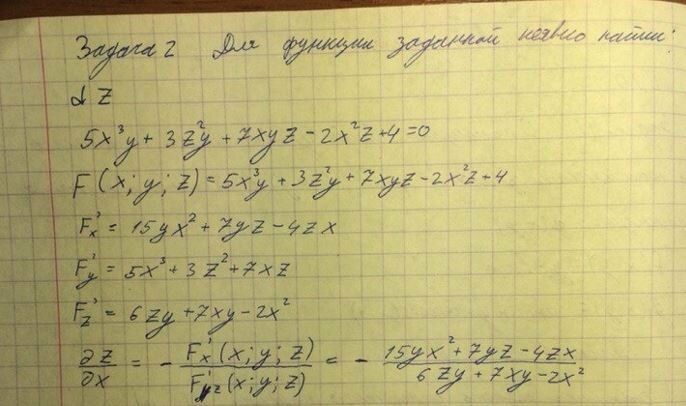 Задача 2 Для функции заданной неявно найти:
dz
5x³y + 3z²y + 7xyz - 2x²z + 4 = 0
F(x; y; z) = 5x³y + 3z²y + 7xyz - 2x²z + 4
F'x = 15yx² + 7yz - 4zx
F'y = 5x³ + 3z² + 7xz
F'z = 6zy + 7xy - 2x²
∂z/∂x = - F'x(x; y; z)/F'z(x; y; z) = - (15yx² + 7yz - 4zx)/(6zy + 7xy - 2x²)